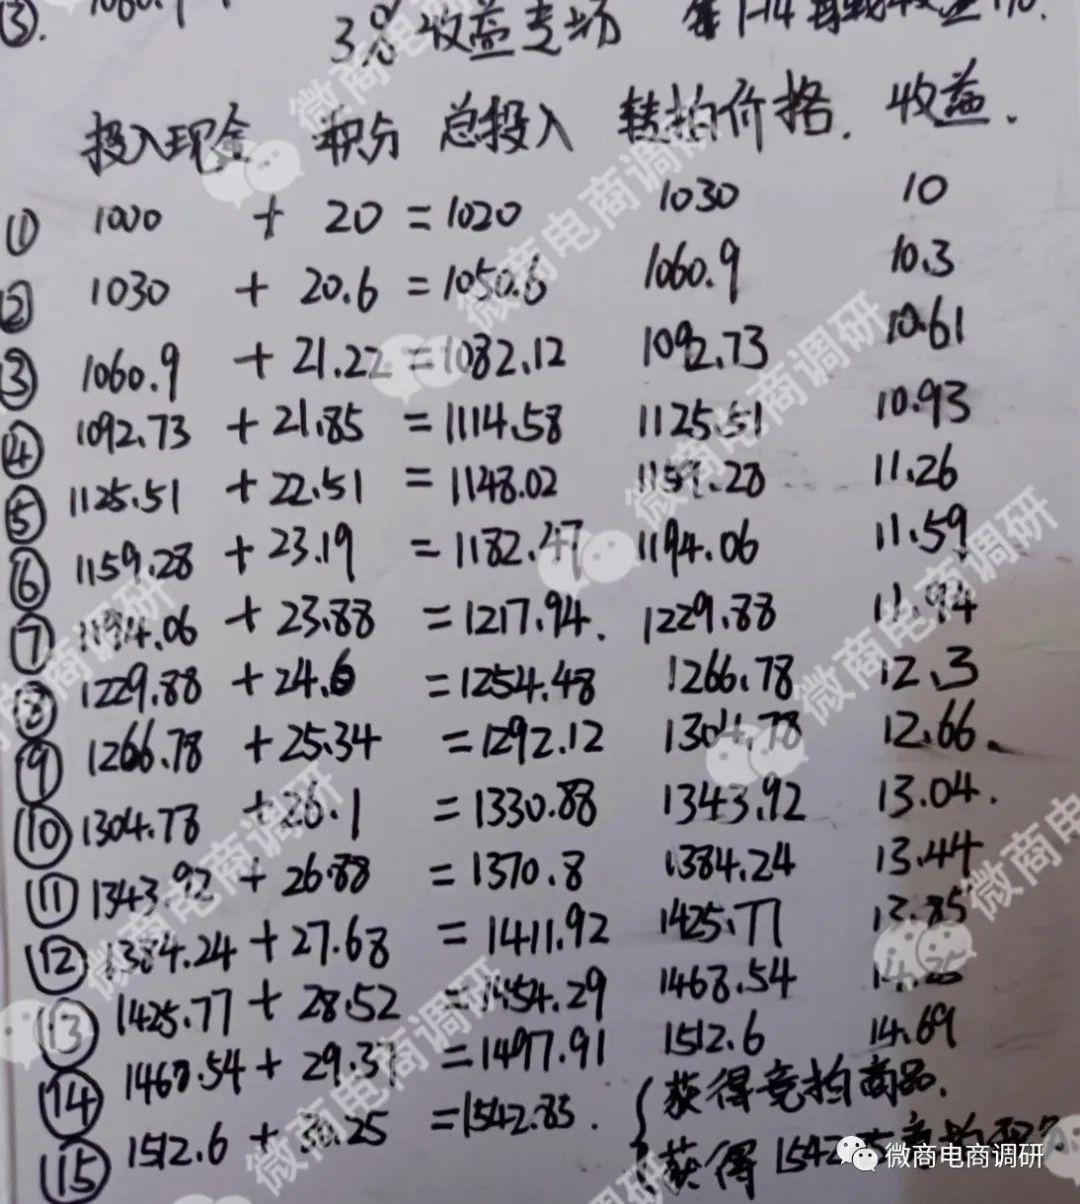 ③.
3% 收益专场 第1-14
投入现金 积分 总投入 转拍价格. 收益.
① 1000 + 20 = 1020 1030 10
② 1030 + 20.6 = 1050.6 1060.9 10.3
③ 1060.9 + 21.22 = 1082.12 1092.73 10.61
④ 1092.73 + 21.85 = 1114.58 1125.51 10.93
⑤ 1125.51 + 22.51 = 1148.02 1159.28 11.26
⑥ 1159.28 + 23.19 = 1182.47 1194.06 11.59
⑦ 1194.06 + 23.88 = 1217.94. 1229.88 11.94
⑧ 1229.88 + 24.6 = 1254.48 1266.78 12.3
⑨ 1266.78 + 25.34 = 1292.12 1304.78 12.66、
⑩ 1304.78 + 26.1 = 1330.88 1343.92 13.04.
⑪ 1343.92 + 26.88 = 1370.8 1384.24 13.44
⑫ 1384.24 + 27.68 = 1411.92 1425.77 13.85
⑬ 1425.77 + 28.52 = 1454.29 1468.54
⑭ 1468.54 + 29.37 = 1497.91 1512.6 14.69
⑮ 1512.6 + 30.25 = 1542.85. 获得竞拍商品.
获得
微商电商调研